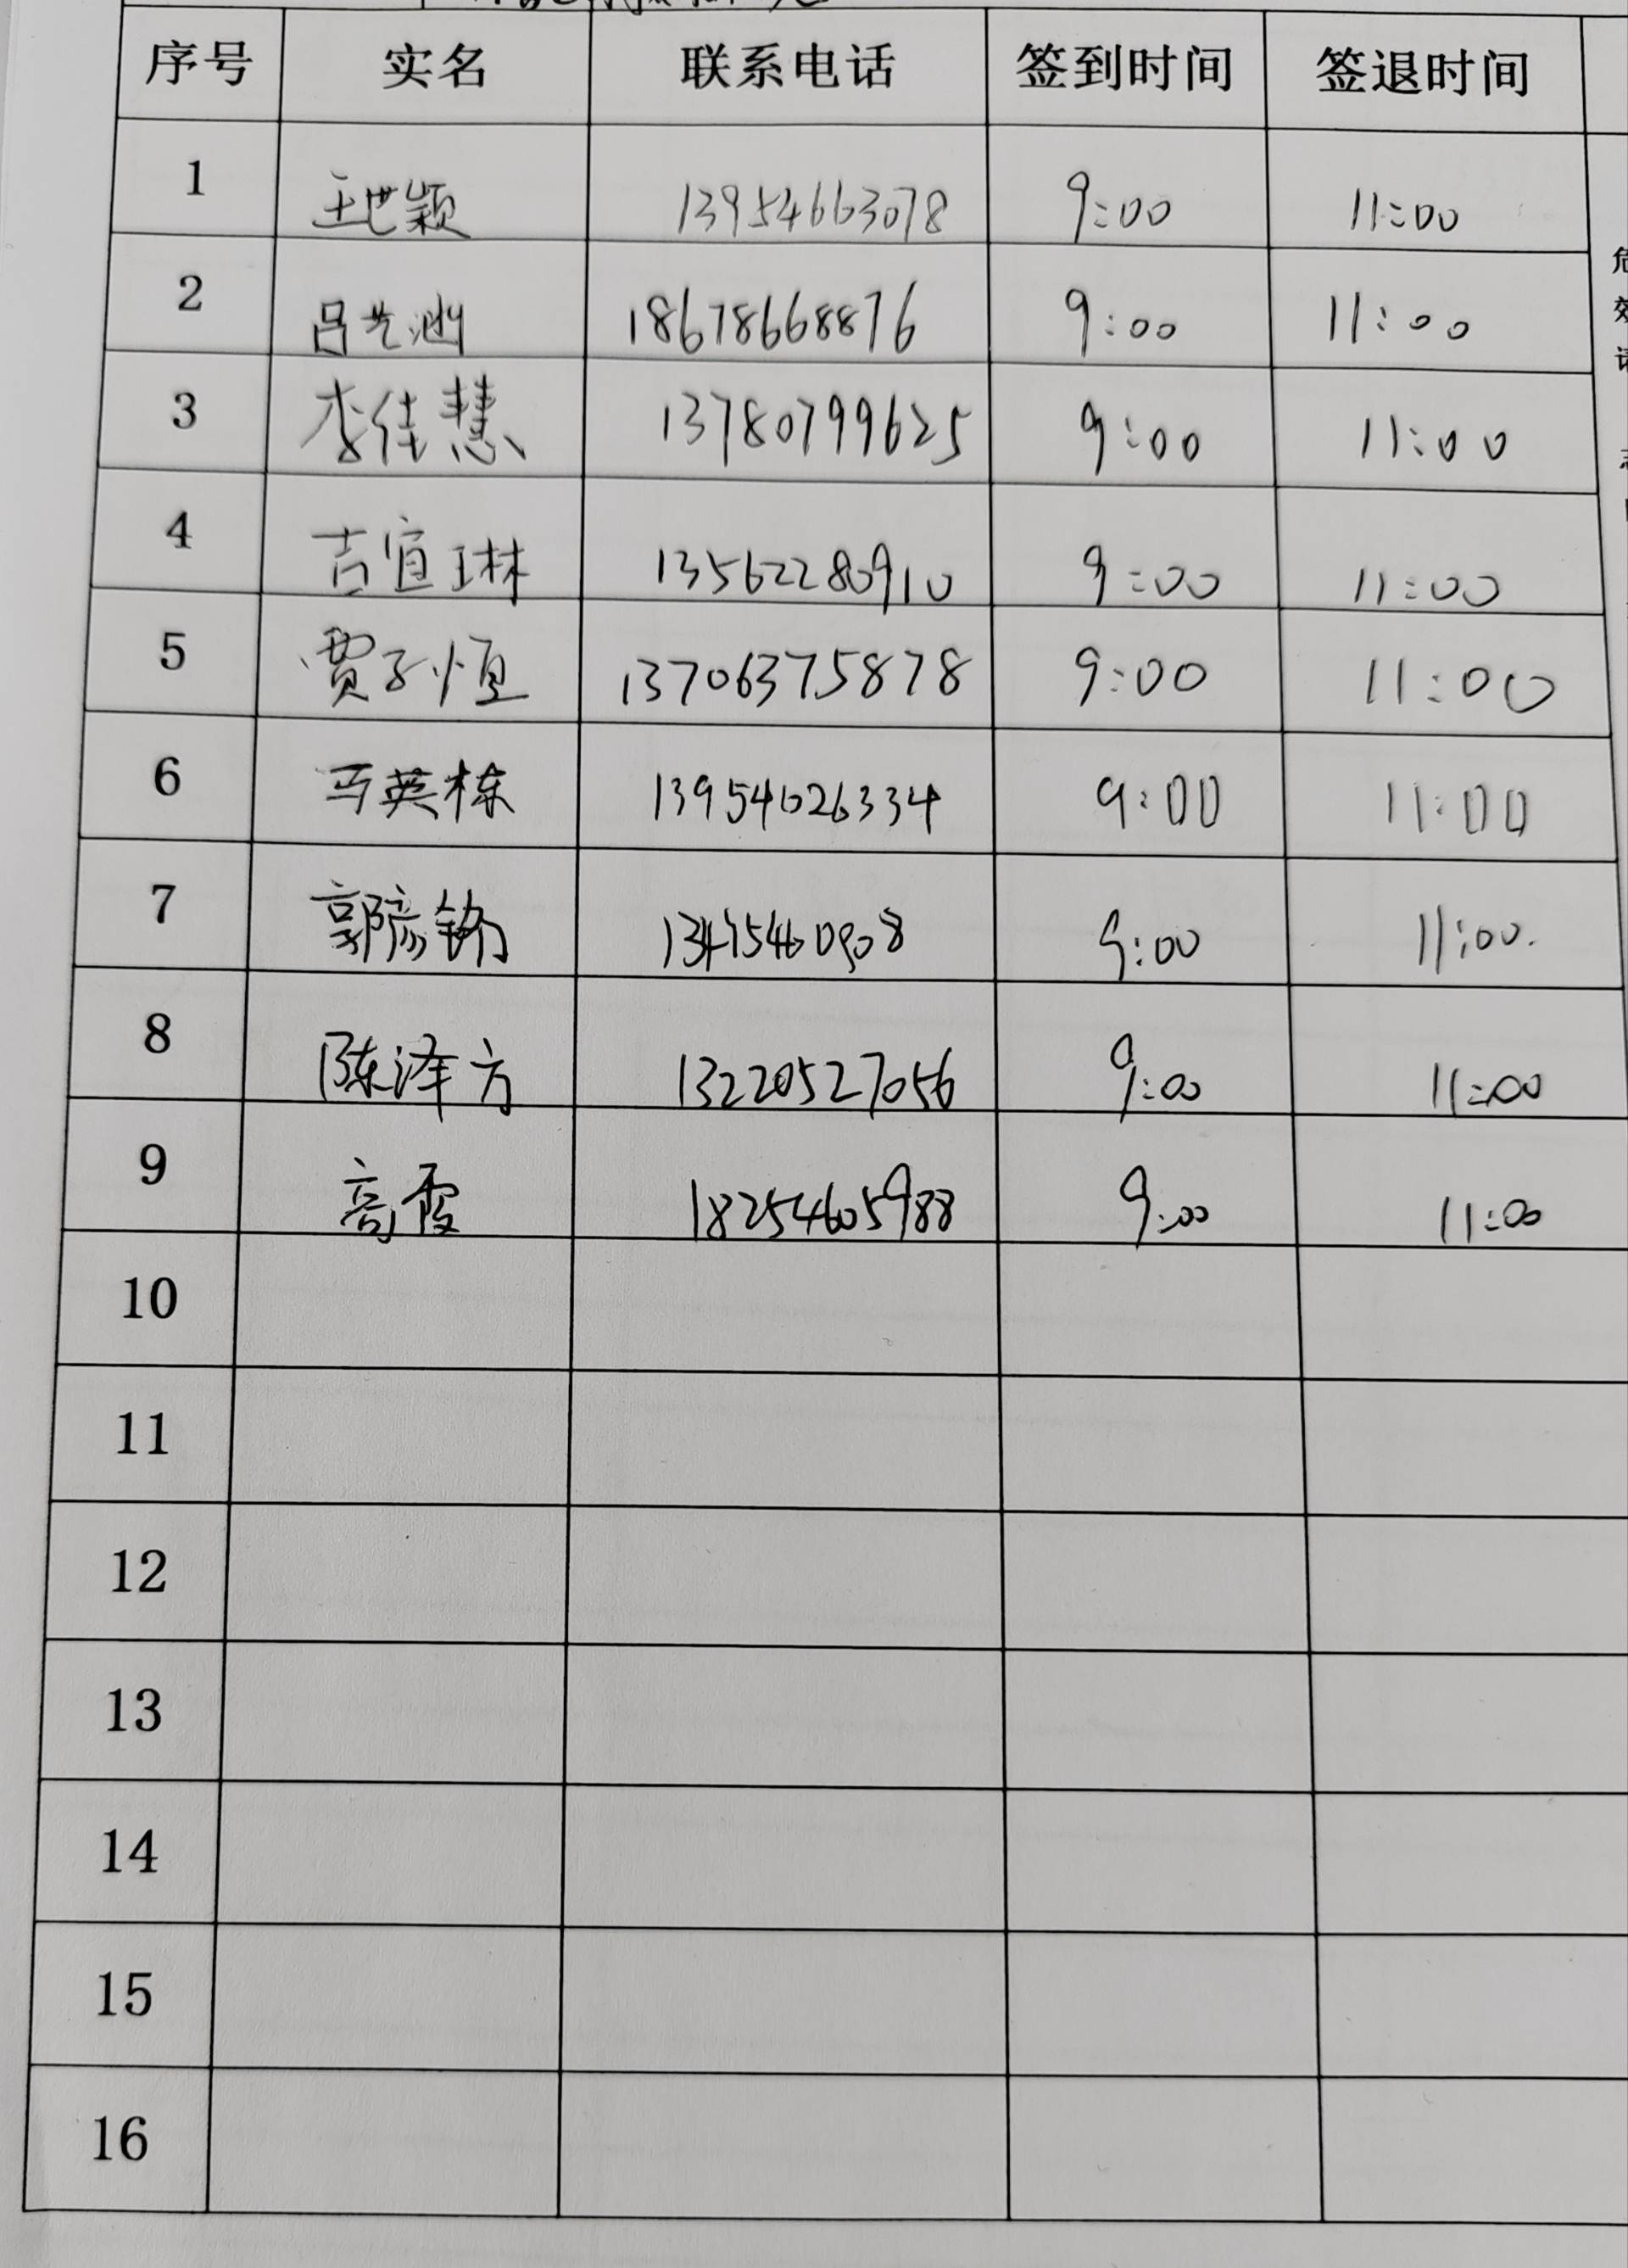 序号 实名 联系电话 签到时间 签退时间
1 王世颖 13954663078 9:00 11:00
2 吕艺涵 18678668876 9:00 11:00
3 李佳慧 13780799625 9:00 11:00
4 吉宜琳 13562280910 9:00 11:00
5 贾子恒 13706375878 9:00 11:00
6 马英栋 13954626334 9:00 11:00
7 郭彦铭 13475460908 9:00 11:00.
8 陈泽方 13220527056 9:00 11:00
9 高霞 18254605988 9:00 11:00
10
11
12
13
14
15
16